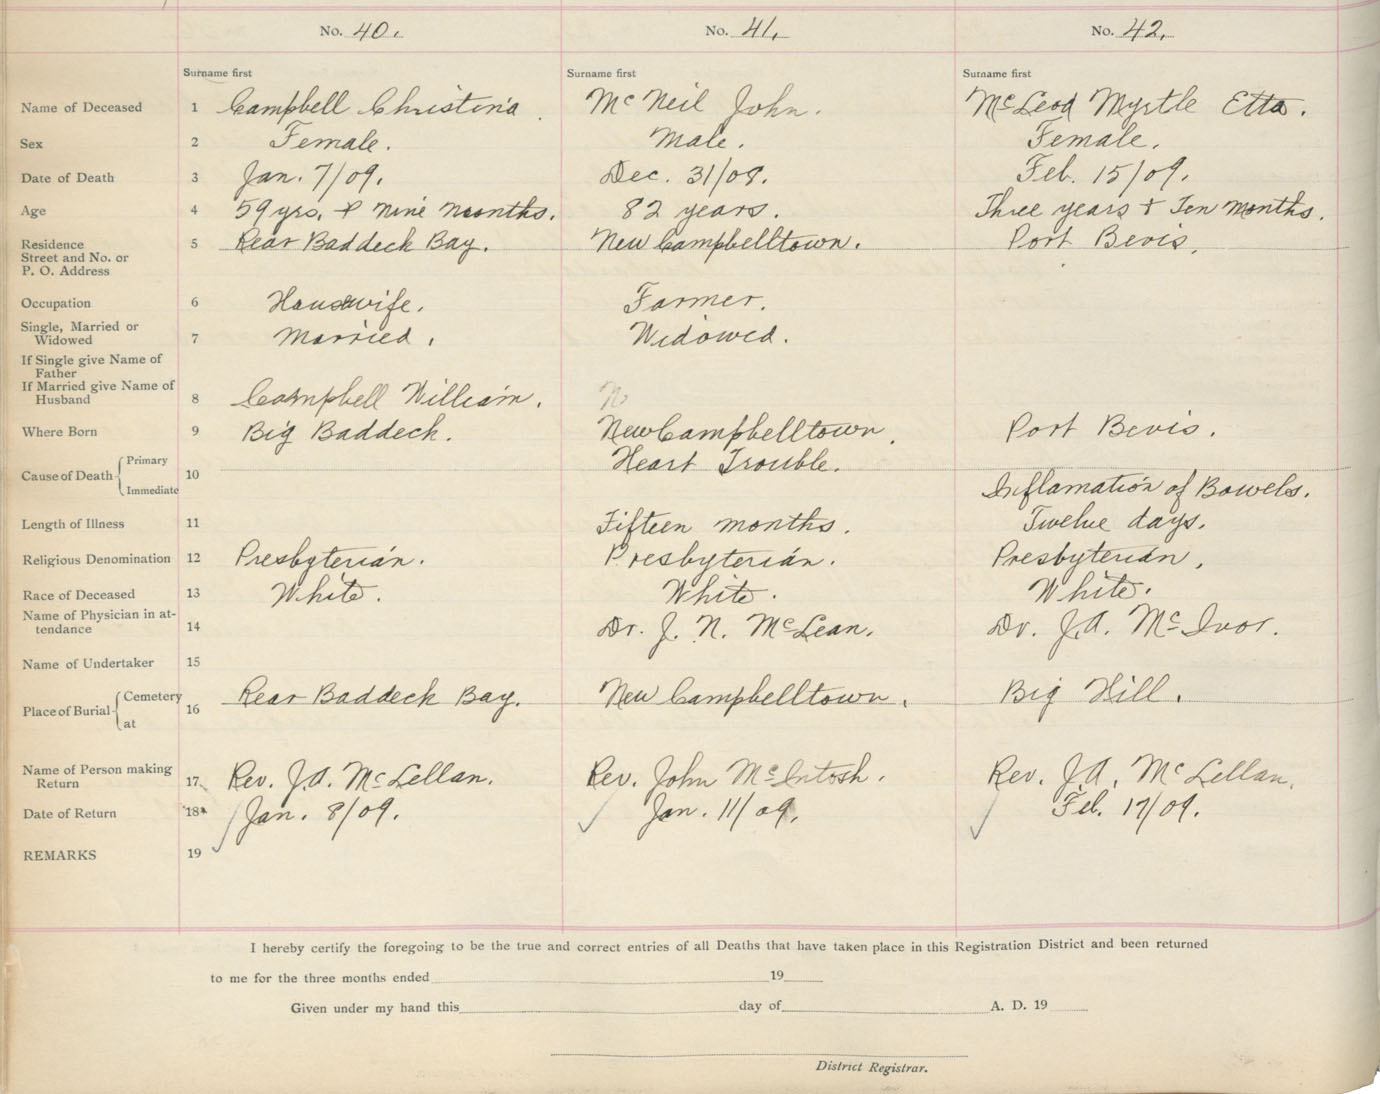 No. 40. No. 41. No. 42.
Surname first Surname first Surname first
Name of Deceased 1 Campbell Christina. Mc Neil John. McLeod Myrtle Etta.
Sex 2 Female. Male. Female.
Date of Death 3 Jan. 7/09. Dec. 31/08. Feb. 15/09.
Age 4 59 yrs. & nine months. 82 years. Three years & Ten Months.
Residence 5 Rear Baddeck Bay. New Campbelltown. Port Bevis.
Street and No. or
P. O. Address
Occupation 6 Housewife. Farmer.
Single, Married or
Widowed 7 Married. Widowed.
If Single give Name of
Father
If Married give Name of
Husband 8 Campbell William. N
Where Born 9 Big Baddeck. New Campbelltown. Port Bevis.
Cause of Death Primary 10 Heart Trouble.
Immediate Inflamation of Bowels.
Length of Illness 11 Fifteen months. Twelve days.
Religious Denomination 12 Presbyterian. Presbyterian. Presbyterian.
Race of Deceased 13 White. White. White.
Name of Physician in at-
tendance 14 Dr. J. N. McLean. Dr. J.A. McIvor.
Name of Undertaker 15
Place of Burial Cemetery 16 Rear Baddeck Bay. New Campbelltown. Big Hill.
at
Name of Person making
Return 17 Rev. J.A. McLellan. Rev. John McIntosh. Rev. J.A. McLellan.
Date of Return 18 Jan. 8/09. Jan. 11/09. Feb. 17/09.
REMARKS 19
I hereby certify the foregoing to be the true and correct entries of all Deaths that have taken place in this Registration District and been returned
to me for the three months ended 19
Given under my hand this day of A. D. 19
District Registrar.